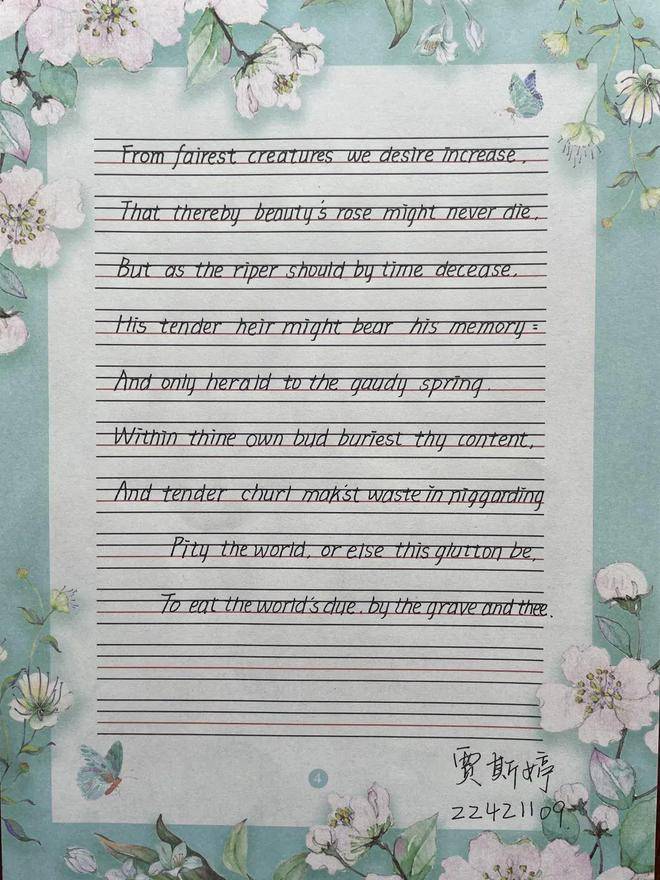 From fairest creatures we desire increase,
That thereby beauty's rose might never die,
But as the riper should by time decease,
His tender heir might bear his memory:
And only herald to the gaudy spring.
Within thine own bud buriest thy content,
And tender churl mak'st waste in niggarding
Pity the world, or else this glutton be,
To eat the world's due, by the grave and thee.
4
贾斯婷
22421109